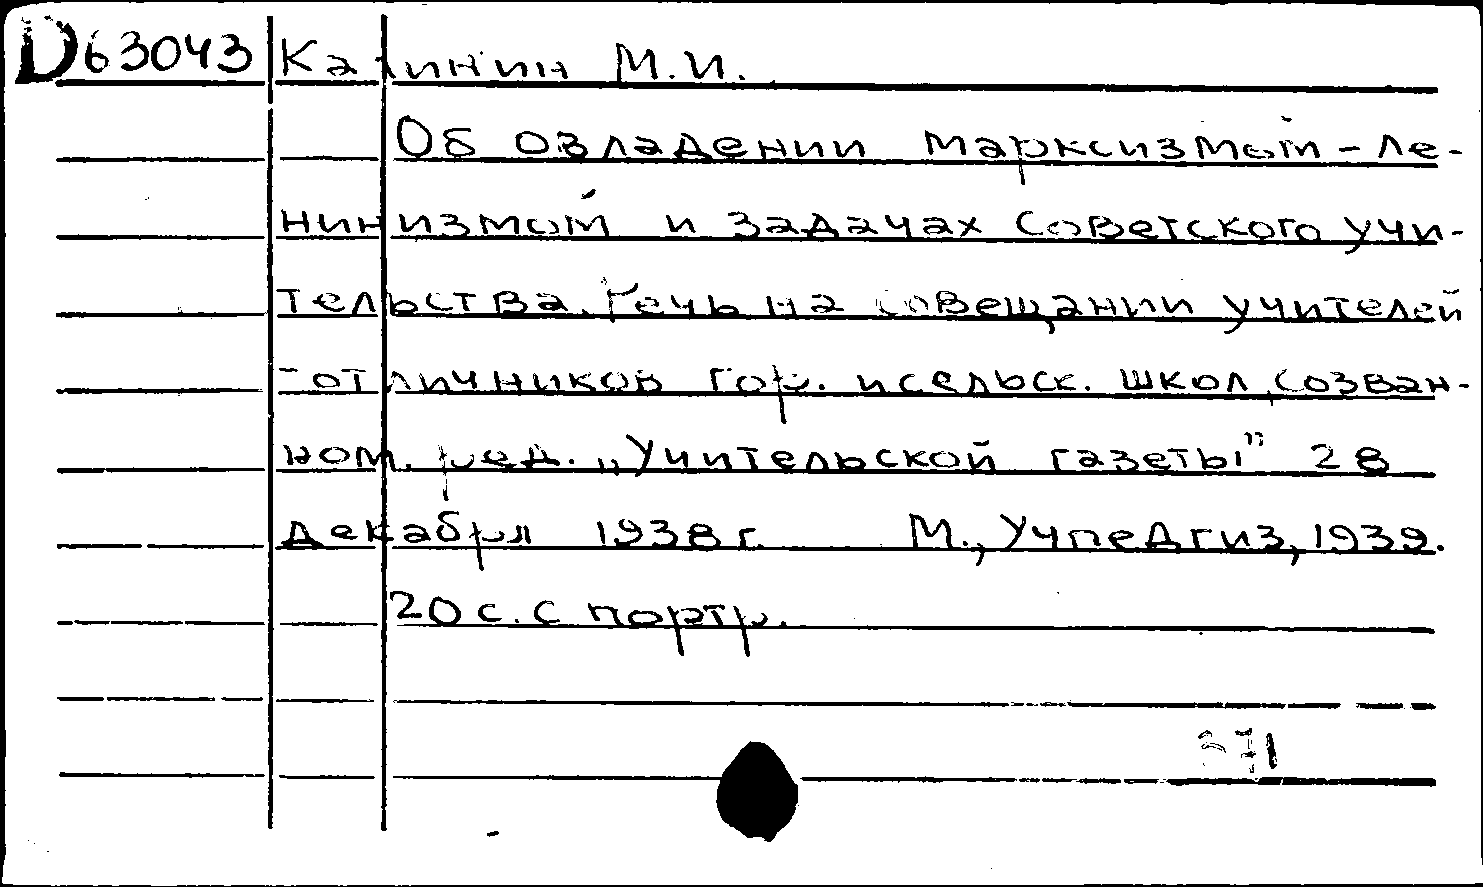 D63043 Калинин М.И.
Об овладении марксизмом-ле-
нинизмом и задачах Советского учи-
тельства. Речь на совещании учителей
-отличников гор. и сельск. школ, созван-
ном. ред. „Учительской газеты" 28
декабря 1938 г. М., Учпедгиз, 1939.
20 с. с портр.